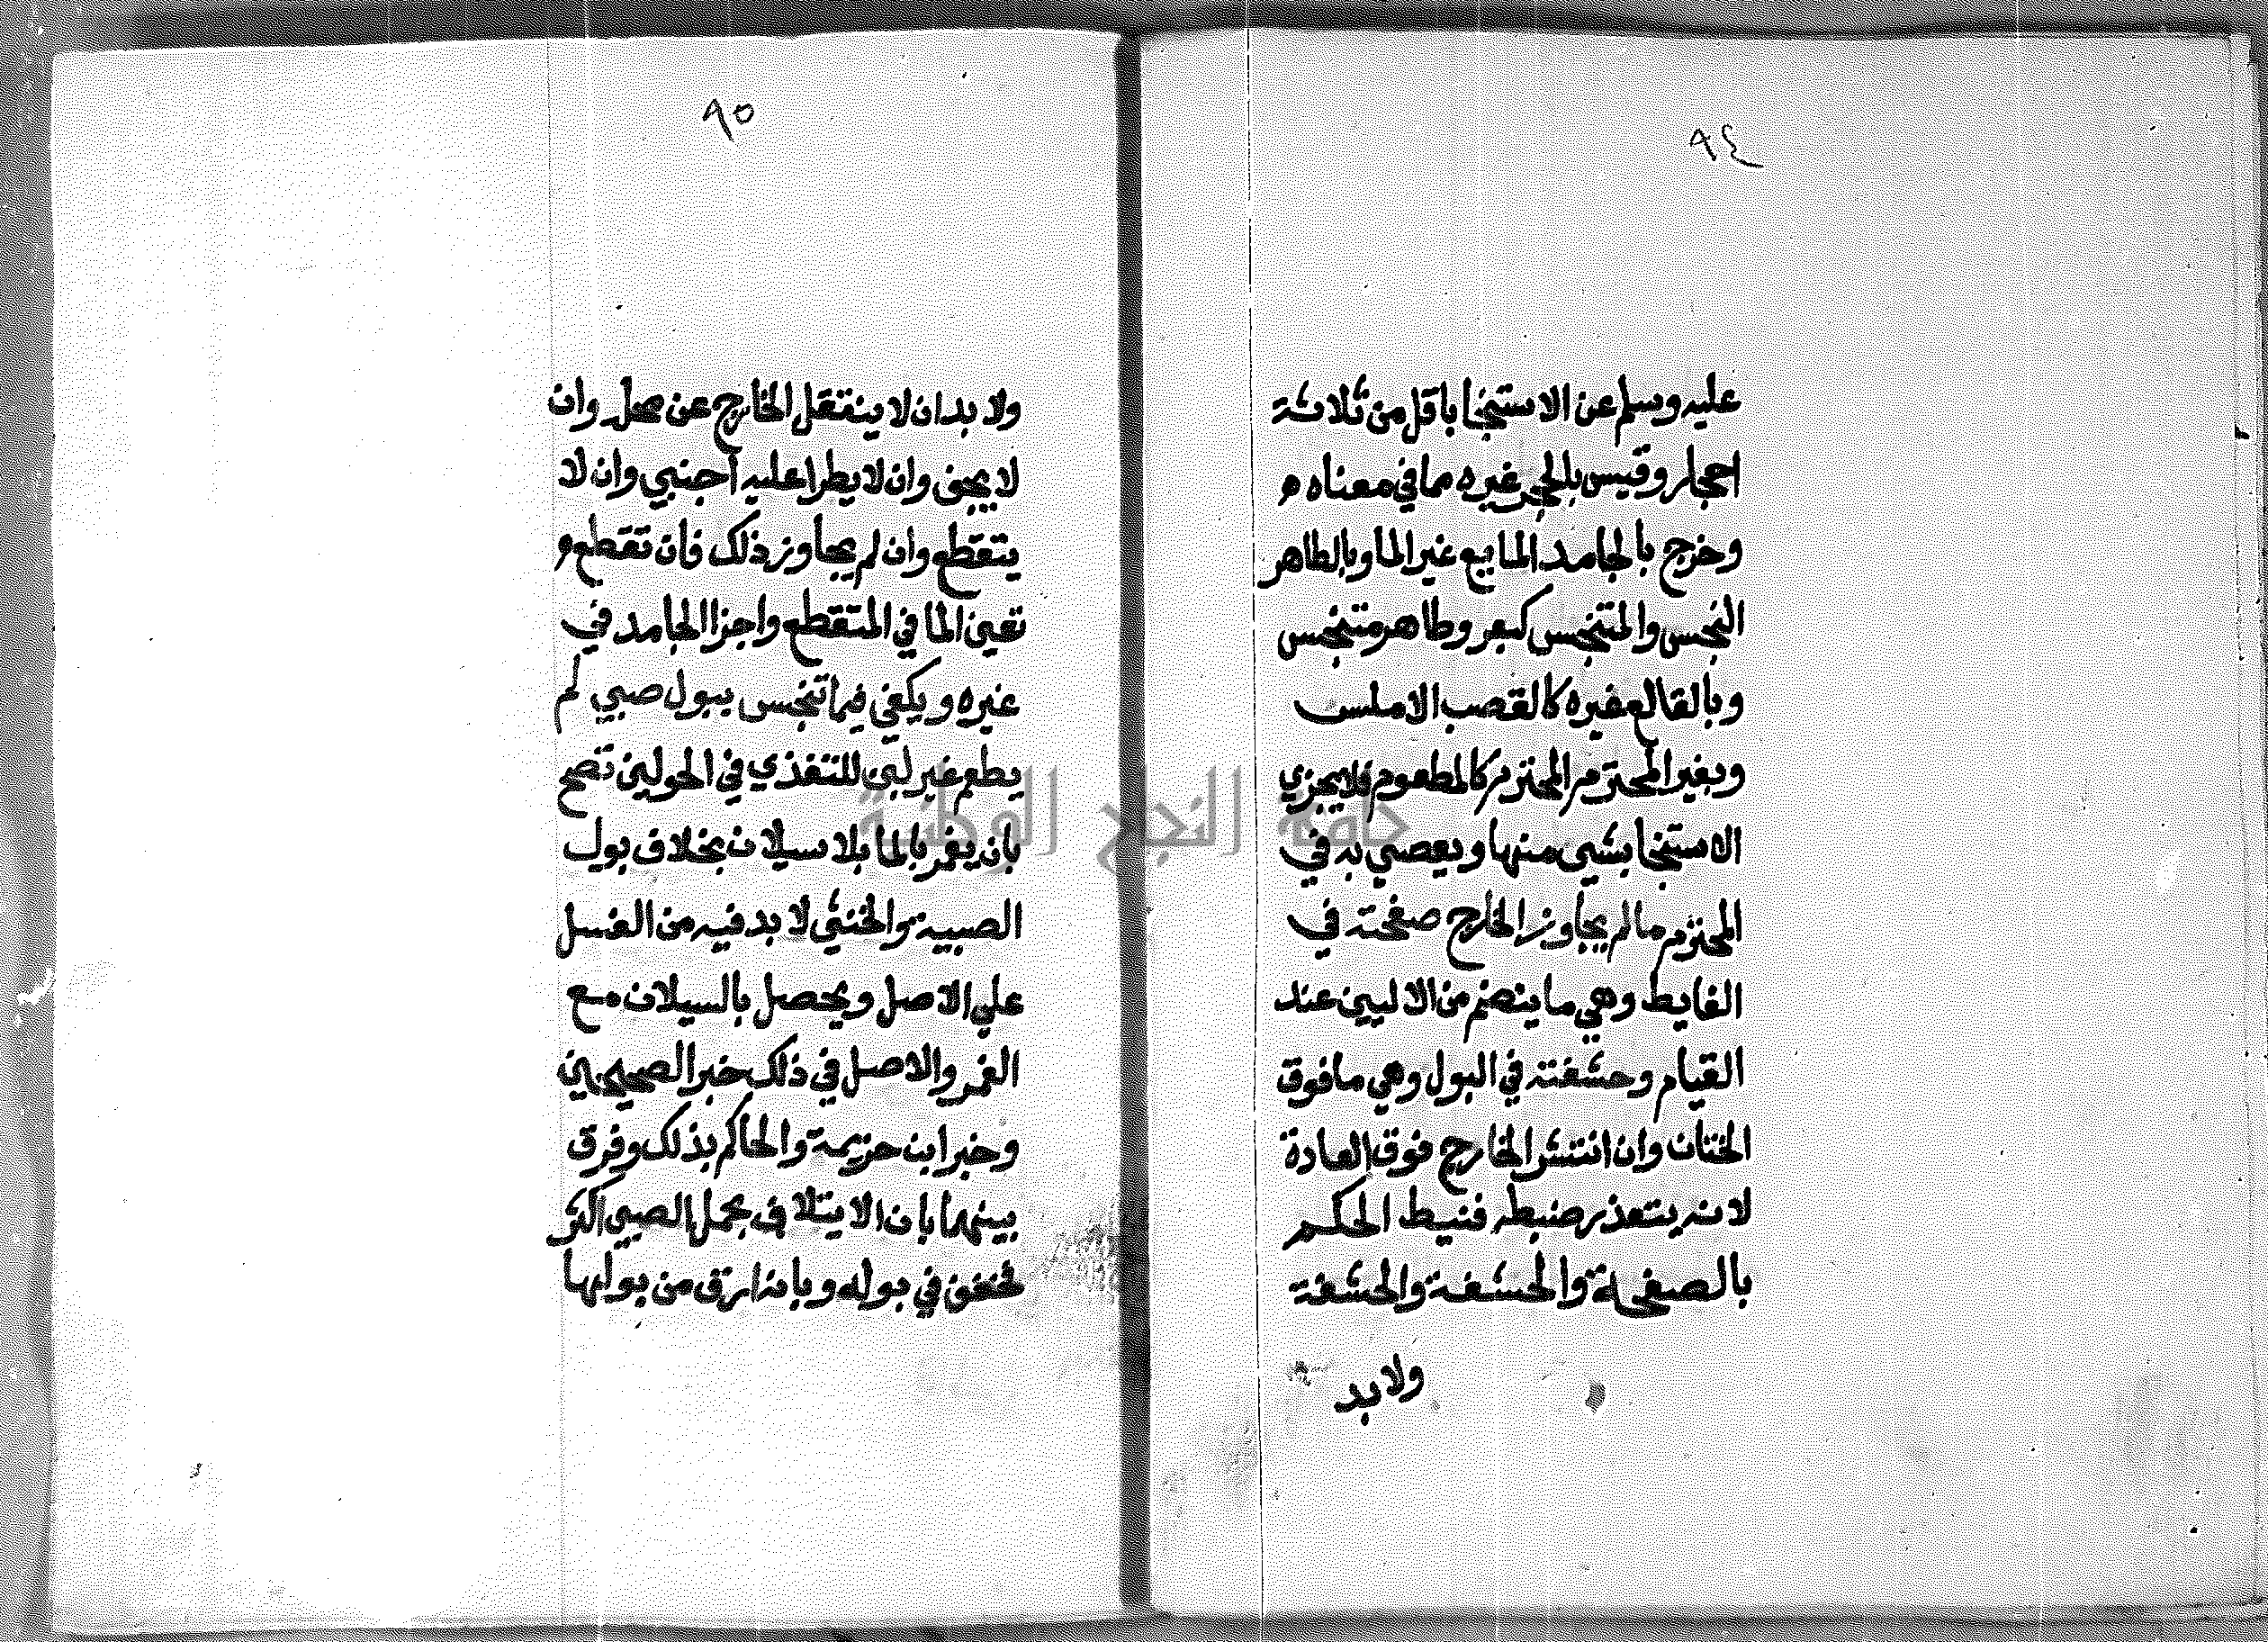 ٩٤
عليه وسلم عن الاستنجا باقل من ثلاثة
احجار وقيس بالحجر غيره مما في معناه
وخرج بالجامد المايع غير الما وبالطاهر
النجس والمتنجس كبعر وطاهر متنجس
وبالقالع غيره كالقصب الاملس
وبغير المحترم المحترم كالمطعوم فلا يجزي
الاستنجا بشي منها ويعصي به في
المحترم ما لم يجاوز الخارج صفحته في
الغايط وهي ما ينضم من الاليين عند
القيام وحشفته في البول وهي ما فوق
الختان وان انتشر الخارج فوق العادة
لانه يتعذر ضبطه فنيط الحكم
بالصفحة والحشفة والحشفة
ولا بد
٩٥
ولا بد ان لا ينتقل الخارج عن محله وان
لا يجف وان لا يطرا عليه اجنبي وان لا
يتقطع وان لم يجاوز ذلك فان تقطع
تعين الما في المتقطع واجزا الجامد في
غيره ويكفي فيما تنجس ببول صبي لم
يطعم غير لبن للتغذي في الحولين نضح
بان يغمر بالما بلا سيلان بخلاف بول
الصبية والخنثي لا بد فيه من الغسل
علي الاصل ويحصل بالسيلان مع
الغمر والاصل في ذلك خبر الصحيحين
وخبر ابن خزيمة والحاكم بذلك وفرق
بينهما بان الابتلا في بحمل الصبي اكثر
فخفف في بوله وبانه ارق من بولها
جامعة النجاح الوطنية